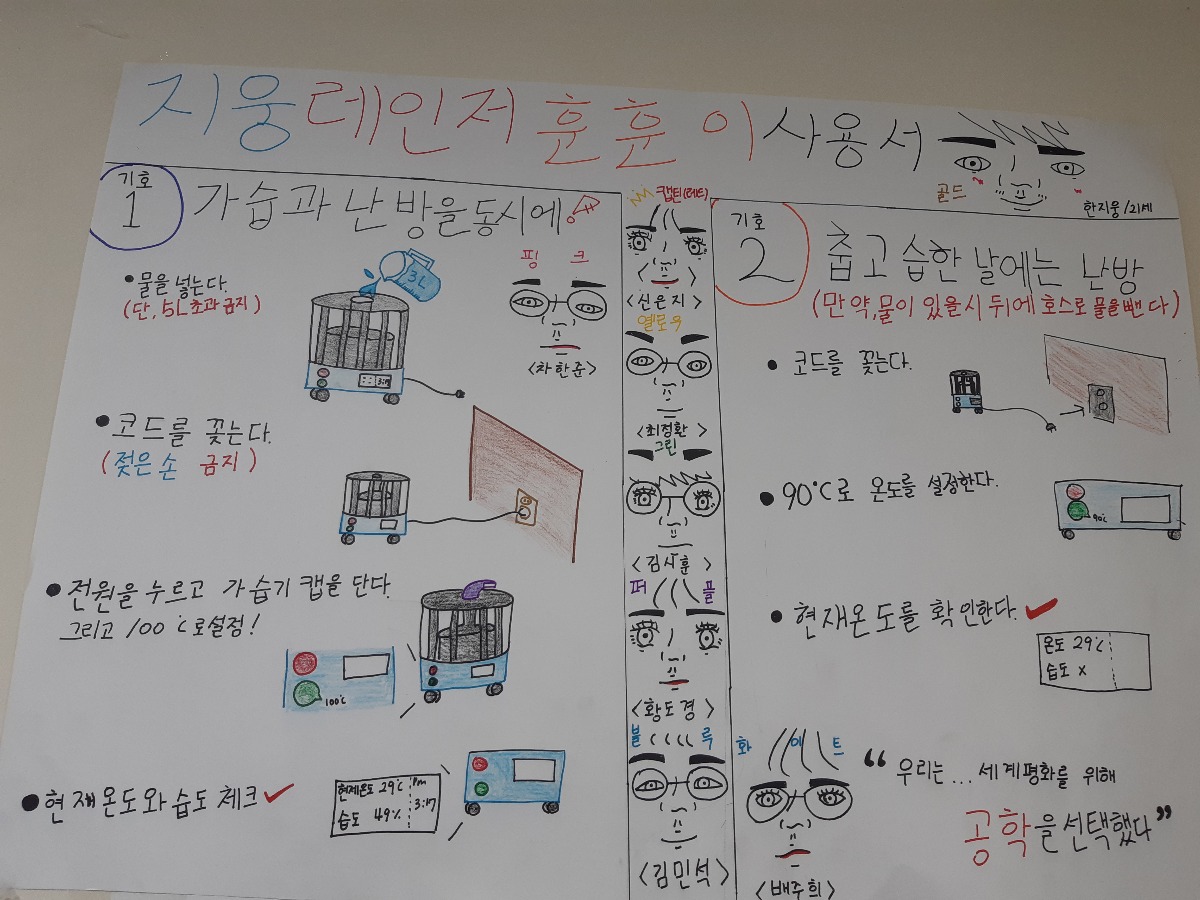 지웅레인저 훈훈이 사용서
골드
한지웅/21세
기호
1
가습과 난방을 동시에!
• 물을 넣는다.
(단, 5L 초과 금지)
3L
3:17
핑크
<차한준>
• 코드를 꽂는다.
(젖은 손 금지)
• 전원을 누르고 가습기 캡을 단다.
그리고 100℃로 설정!
100℃
• 현재온도와 습도 체크✓
현재온도 29℃
습도 49%
Pm
3:17
캡틴(레드)
<신은지>
옐로우
<최정환>
그린
<김시훈>
퍼플
<황도경>
블루
<김민석>
기호
2
춥고 습한 날에는 난방
(만약, 물이 있을시 뒤에 호스로 물을 뺀다)
• 코드를 꽂는다.
• 90℃로 온도를 설정한다.
90℃
• 현재온도를 확인한다.✓
온도 29℃
습도 x
화이트
<배주희>
“우리는... 세계평화를 위해
공학을 선택했다”